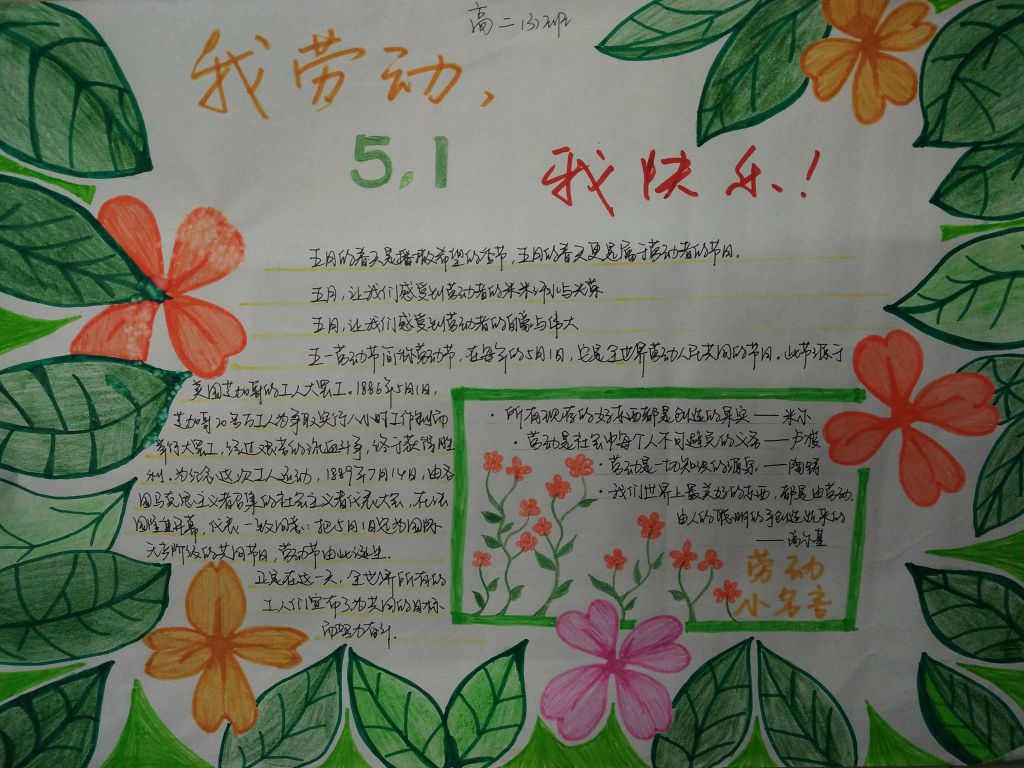 高二(3)班
我劳动,
5.1 我快乐!
五月的春天是播撒希望的季节,五月的春天更是属于劳动者的节日。
五月,让我们感受到劳动者的光荣
五月,让我们感受到劳动者的与伟大
五一劳动节简称劳动节,在每年的5月1日,它是全世界劳动人民共同的节日。此节源于
美国芝加哥的工人大罢工。1886年5月1日,
芝加哥20多万工人为争取实行八小时工作制而
举行大罢工,经过艰苦的流血斗争,终于获得胜
利。为纪念这次工人运动,1889年7月14日,由各
国马克思主义者召集的社会主义者代表大会,在法
国隆重开幕,代表一致同意:把5月1日定为国际
无产阶级的共同节日,劳动节由此诞生。
正是在这一天,全世界所有的
工人们宣布了为共同的目标
而努力奋斗.
·所有现存的好东西都是创造的果实——米尔
·劳动是社会中每个人不可避免的义务——卢梭
·劳动是一切知识的源泉.——陶铸
·我们世界上最美好的东西,都是由劳动、
由人的聪明的手创造出来的
——高尔基
劳动
小名言